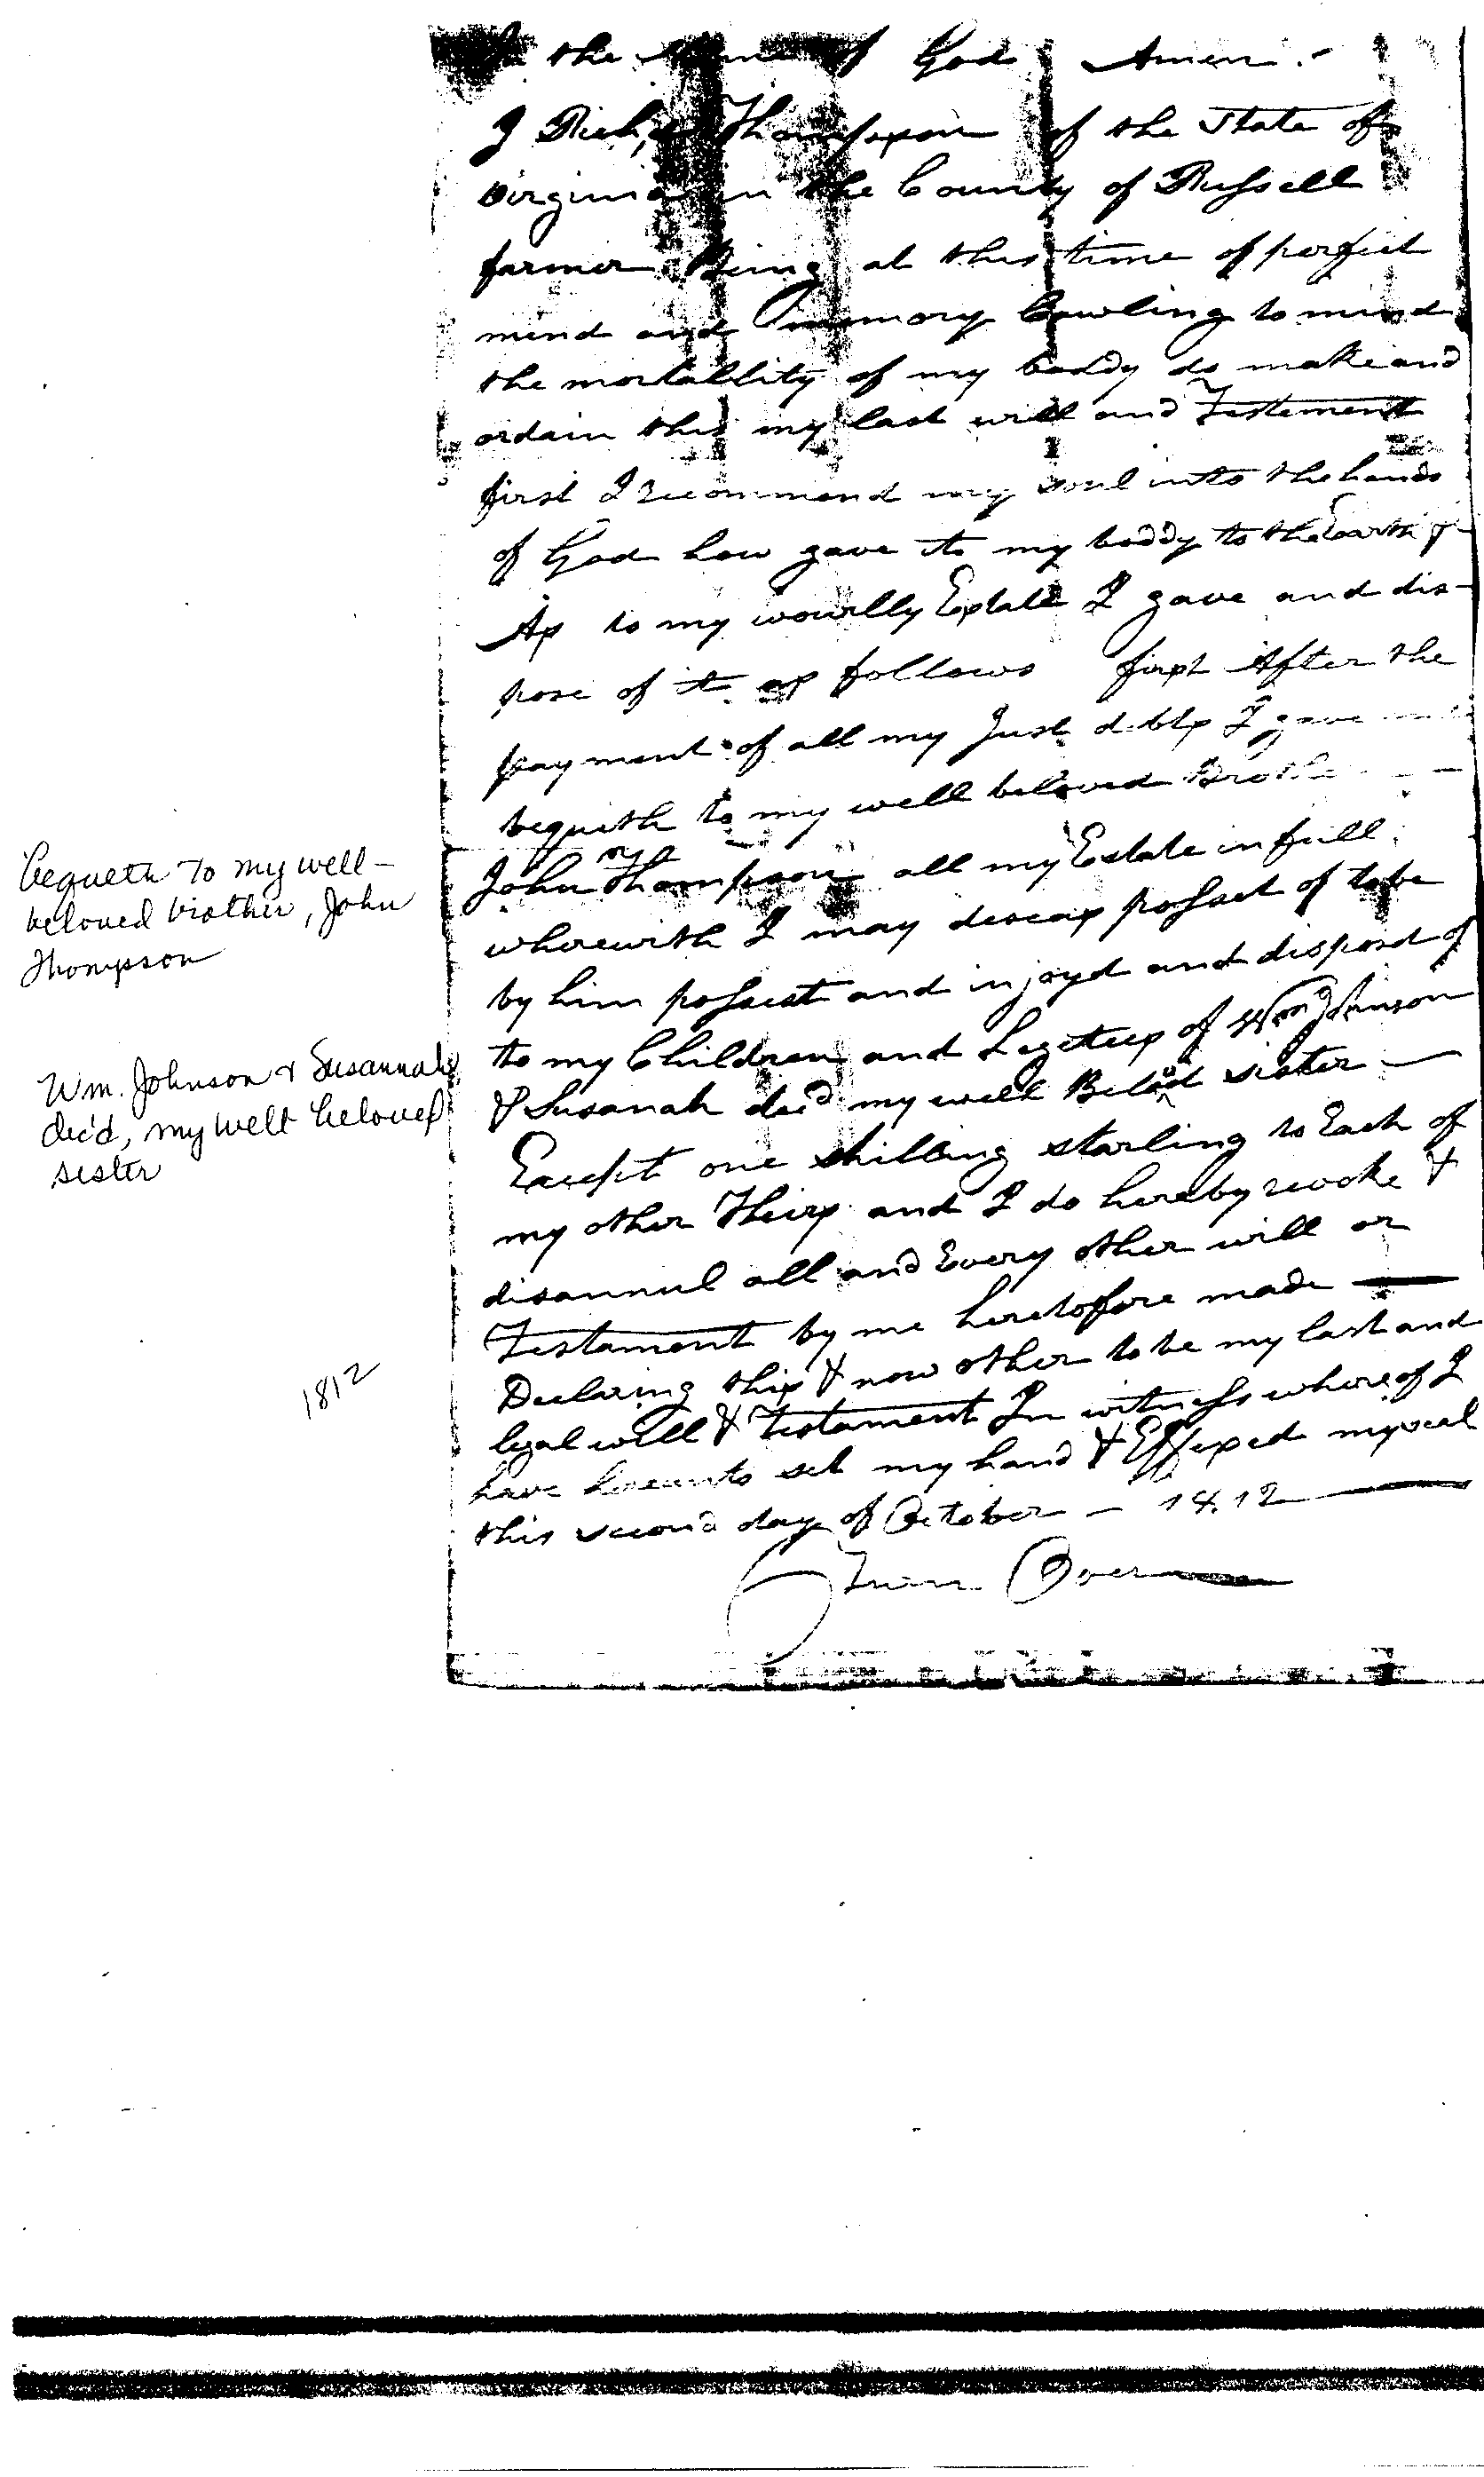 In the Name of God Amen.
I Rich,d Thompson of the State of
Virginia in the County of Russell
farmer Being at this time of perfect
mind and memory Cawling to mind
the mortallity of my boddy do make and
ordain this my last will and Testement
first I recommend my soul into the hands
of God how gave it my boddy to the Earth &
As to my wourlly Estate I gave and dis-
pose of it as follows first After the
payment of all my Just debts I gave
bequith to my well beloved Brother
John Thompson all my Estate in full
wherewith I may deceas possest of to be
by him possest and injoyd and disposd of
to my Children and Legetees of Wm Johnson
& Susanah decd my well Belod sister
Except one shilling starling to Each of
my other Heirs and I do hereby revoke &
disannul all and Every other will or
Testament by me heretofore made
Declaring this & now other to be my last and
legal will & Testament In witness whereof I
have hereunto set my hand & Effixed my seal
this second day of October - 1812
Turn Over
bequeth to my well-
beloved brother, John
Thompson
Wm. Johnson & Susannah
dec'd, my well beloved
sister
1812